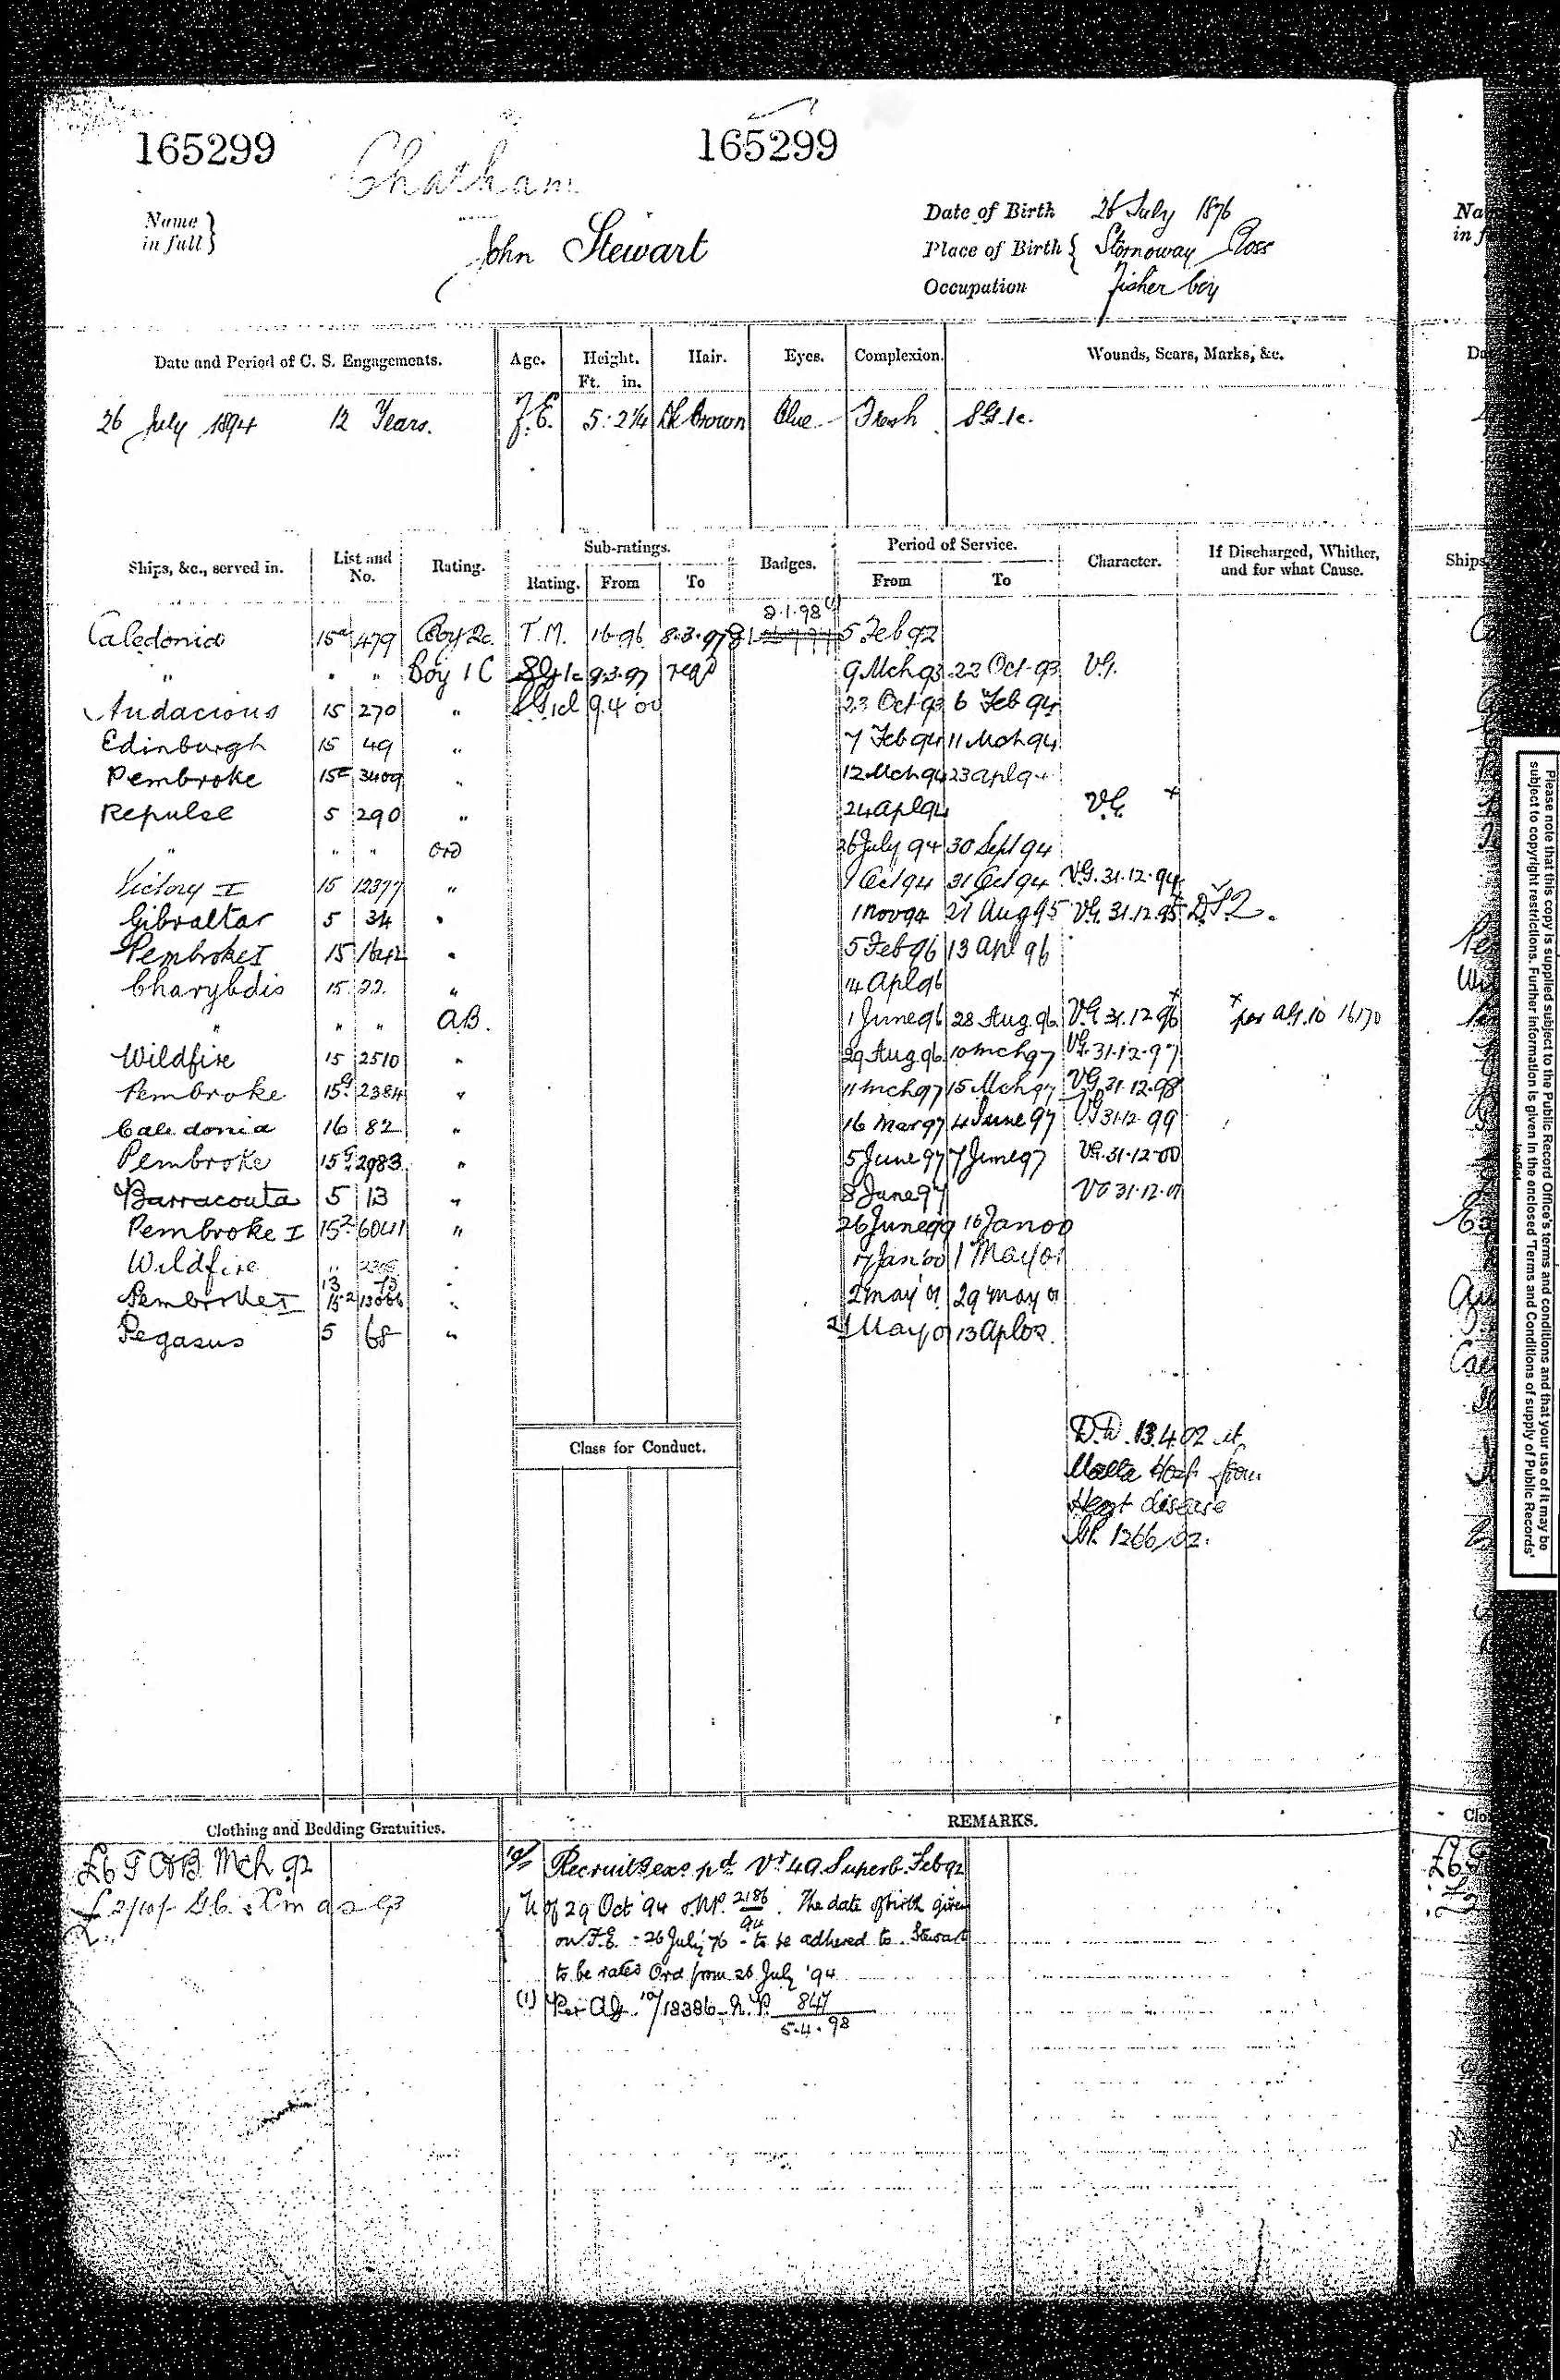 165299 Chatham 165299
Name in full } John Stewart
Date of Birth 26 July 1876
Place of Birth { Stornoway Ross
Occupation Fisher boy
Date and Period of C. S. Engagements. Age. Height. Ft. in. Hair. Eyes. Complexion. Wounds, Scars, Marks, &c.
26 July 1894 12 Years. F.E. 5:2¼ Dk Brown Blue Fresh
Ships, &c., served in. List and No. Rating. Sub-ratings. Rating. From To Badges. Period of Service. From To Character. If Discharged, Whither, and for what Cause.
8.1.98 (1)
Caledonia 15a 479 Boy 2c. T.M. 1.6.96 8.3.97 5 Feb 92
" " " Boy 1C SG1c 9.3.97 9 Mch 93 22 Oct 93 V.G.
Audacious 15 270 " 9.4 00 23 Oct 93 6 Feb 94
Edinburgh 15 49 " 7 Feb 94 11 Mch 94
Pembroke 15c 3409 " 12 Mch 94 23 Apl 94
Repulse 5 290 " 24 Apl 94 V.G. x
" " " Ord 26 July 94 30 Sept 94
Victory I 15 12377 " 1 Oct 94 31 Oct 94 V.G. 31.12.94
Gibraltar 5 34 " 1 Nov 94 27 Aug 95 V.G. 31.12.95 D.S.Q.
Pembroke I 15 1642 " 5 Feb 96 13 Apl 96
Charybdis 15 22 " 14 Apl 96
" " " A.B. 1 June 96 28 Aug 96 V.G. 31.12.96 x x per A.G. 10 16170
Wildfire 15 2510 " 29 Aug 96 10 Mch 97 V.G. 31.12.97
Pembroke 15g 2384 " 11 Mch 97 15 Mch 97 V.G. 31.12.98
Caledonia 16 82 " 16 Mar 97 4 June 97 V.G. 31.12.99
Pembroke 15g 2983 " 5 June 97 7 June 97 V.G. 31.12.00
Barracouta 5 13 " 8 June 97 VG 31.12.01
Pembroke I 15² 6041 " 26 June 99 16 Jan 00
Wildfire " " 17 Jan 00 1 May 01
13 73
Pembroke I 15² 13066 " 2 May 01 29 May 01
Pegasus 5 68 " May 01 13 Apl 02
D.D. 13.4.02 at
Malta Hosp from
Heart disease
N.P. 1266/02.
Class for Conduct.
Clothing and Bedding Gratuities. REMARKS.
£6 Mch 92
£2/10/-
10/- Recruit exs pd Vr 49 Superb Feb 92
of 29 Oct 94 N.P. 2186/94. The date of birth given
on F.E. - 26 July 76 - to be adhered to. Stewart
to be rated Ord from 26 July '94
(1) Per AG 10/18386 N.P. 847
5.4.98
Please note that this copy is supplied subject to the Public Record Office's terms and conditions and that your use of it may be
subject to copyright restrictions. Further information is given in the enclosed 'Terms and Conditions of supply of Public Records'
leaflet